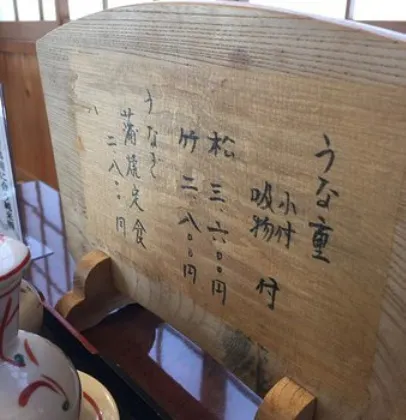 うな重
小付
吸物 付
松 三、六〇〇円
竹 二、八〇〇円
うなぎ
蒲焼定食
二、八〇〇円